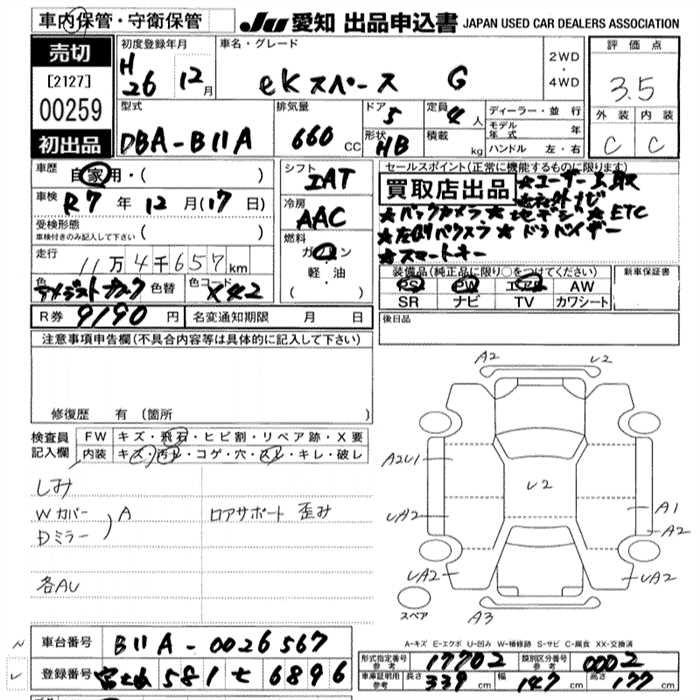 車内保管・守衛保管
JU 愛知 出品申込書 JAPAN USED CAR DEALERS ASSOCIATION
売切
[2127]
00259
初出品
初度登録年月
H 26 12月
車名・グレード
eKスペース G
2WD
・
4WD
評価点
3.5
外装 内装
C C
型式
DBA-B11A
排気量
660 CC
ドア
5
形状
HB
定員
4人
積載
kg
ディーラー・並行
モデル年式 年
ハンドル 左・右
車歴
自家用・( )
車検
R7 年 12 月(17 日)
受検形態
車検付きのみ記入して下さい
( )
走行
11万4千657km
色
色替
色コード
X42
シフト
IAT
冷房
AAC
燃料
ガソリン
軽・油
( )
セールスポイント(正常に機能するものに限ります)
買取店出品
★ユーザー買取
★社外ナビ
★バックカメラ ★地デジ ★ETC
★左側パワスラ ★ドラバイザー
★スマートキー
装備品(純正品に限り○をつけてください)
PS PW エアB AW
SR ナビ TV カワシート
新車保証書
後日品
R券 9190 円
名変通知期限 月 日
注意事項申告欄(不具合内容等は具体的に記入して下さい)
修復歴 有 (箇所 )
検査員記入欄
FW キズ・飛石・ヒビ割・リペア跡・X要
内装 キズ・汚れ・コゲ・穴・スレ・キレ・破レ
しみ
Wカバー
Dミラー
A
ロアサポート 歪み
各AU
A2
U2
A2U1
U2
UA2
A1
A2
UA2
UA2
A3
スペア
A-キズ E-エクボ U-凹み W-補修跡 S-サビ C-腐食 XX-交換済
車台番号 B11A-0026567
登録番号 581 6896
型式指定番号 参考 17702
類別区分番号 参考 0002
車庫証明用 参考 長さ 339 cm 幅 147 cm 高さ 177 cm